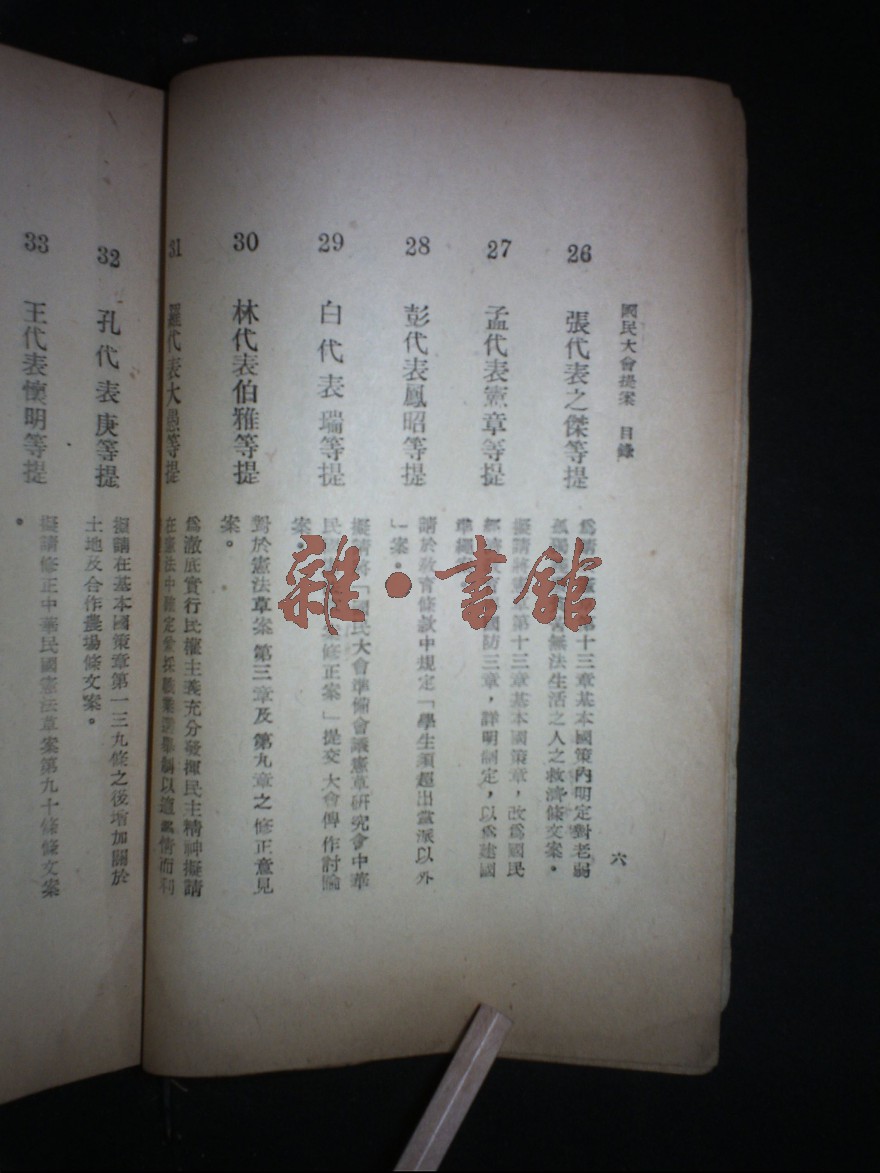 國民大會提案　目錄
六
26　張代表之傑等提
為請 第十三章基本國策內明定對老弱
無法生活之人之救濟條文案。
27　孟代表憲章等提
擬請將憲草第十三章基本國策章，改為國民
國防三章，詳明制定，以為建國
準繩
28　彭代表鳳昭等提
請於教育條款中規定「學生須超出黨派以外
」案。
29　白代表瑞等提
擬請將「國民大會準備會議憲草研究會中華
民 修正案」提交大會俾作討論
案。
30　林代表伯雅等提
對於憲法草案第三章及第九章之修正意見
案。
31　羅代表大愚等提
為澈底實行民權主義充分發揮民主精神擬請
在憲法中確定兼採職業選舉制以適 情而利
32　孔代表庚等提
擬請在基本國策章第一三九條之後增加關於
土地及合作農場條文案。
33　王代表懷明等提
擬請修正中華民國憲法草案第九十條條文案
。
雜·書館